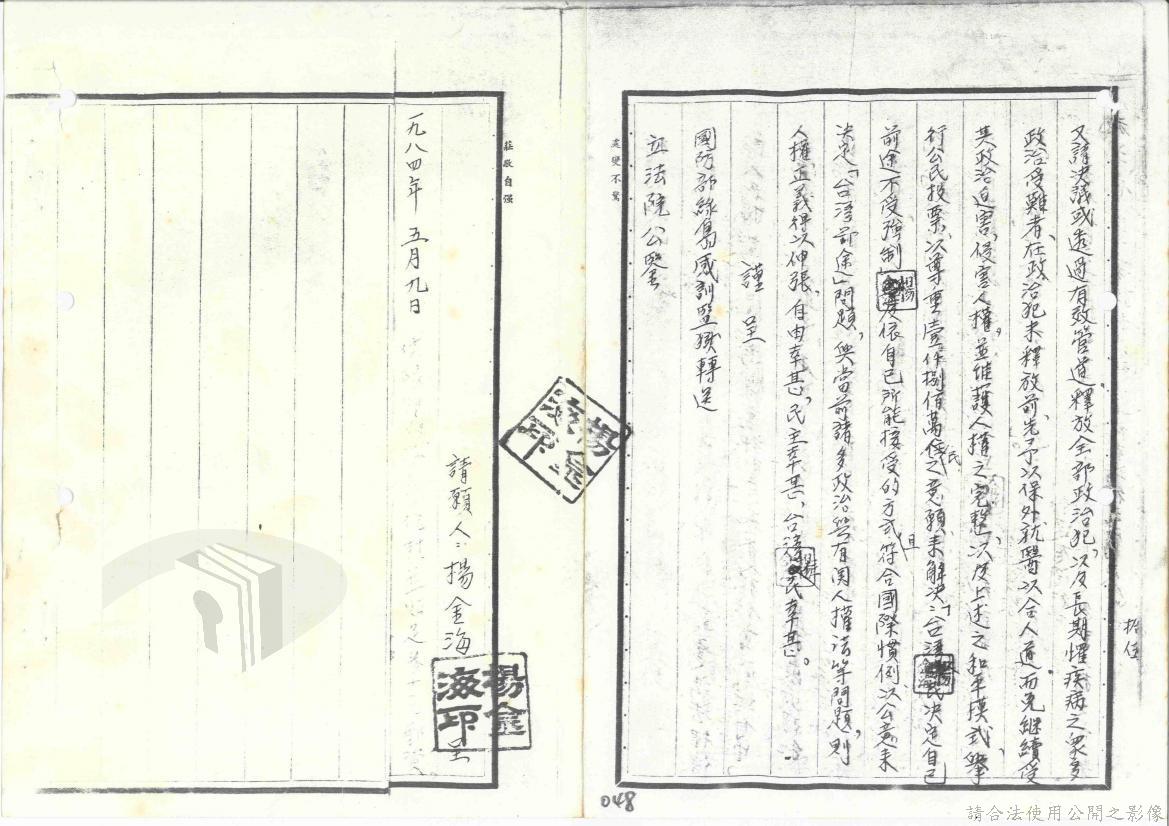 又請決議或透過有效管道，釋放全部政治犯，以及長期懼疾病之衆多
政治受難者、在政治犯未釋放前、先予以保外就醫以合人道，而免繼續受
其政治迫害，侵害人權，並維護人權之完整、以及上述之和平模式，舉
行公民投票、以尊重壹仟捌佰萬住民之意願、來解決：「台灣 民決定自己
前途不受強制 及依自己所能接受的方式且符合國際慣例以公意來
決定「台灣前途」問題，與當前諸多政治與有関人權法等問題，則
人權、正義得以伸張、自由幸甚、民主幸甚、台灣 民幸甚。
謹呈
國防部綠島感訓監獄轉送
立法院公鑒
拾伍
處變不驚
莊敬自强
請願人：楊金海 呈
楊金海印
楊金海印
一九八四年五月九日
048
請合法使用公開之影像